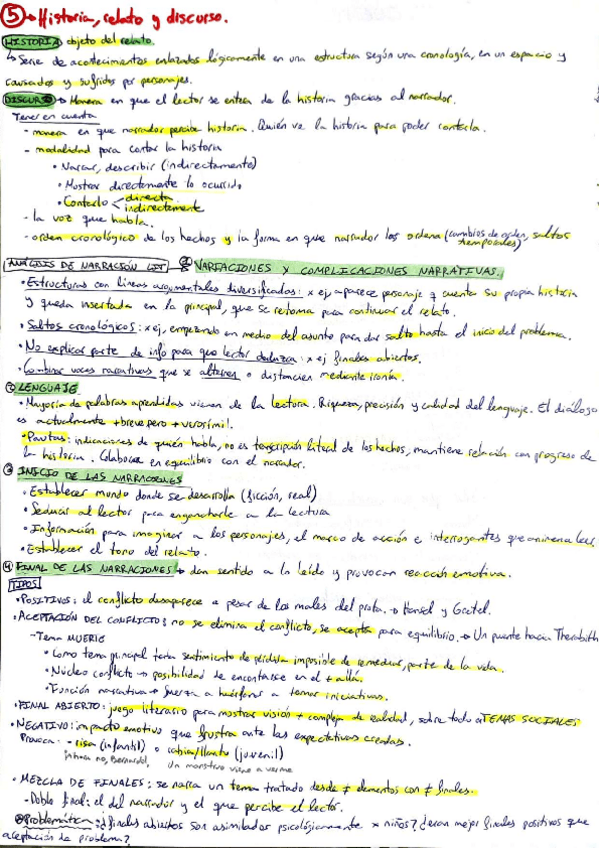 ⑤→Historia, relato y discurso.
HISTORIA objeto del relato.
↳ Serie de acontecimientos enlazados lógicamente en una estructura según una cronología, en un espacio y
causados y sufridos por personajes.
DISCURSO → Manera en que el lector se entera de la historia gracias al narrador.
Tener en cuenta
- manera en que narrador percibe historia. Quién ve la historia para poder contarla.
- modalidad para contar la historia
• Narrar, describir (indirectamente)
• Mostrar directamente lo ocurrido
• Contarlo < directa
indirectamente
- la voz que habla.
- orden cronológico de los hechos y la forma en que narrador los ordena (cambios de orden, saltos
temporales)
ANÁLISIS DE NARRACIÓN LIT → ① VARIACIONES Y COMPLICACIONES NARRATIVAS.
• Estructuras con líneas argumentales diversificadas: x ej, aparece personaje q cuenta su propia historia
y queda insertada en la principal, que se retoma para continuar el relato.
• Saltos cronológicos: x ej, empezando en medio del asunto para dar salto hasta el inicio del problema.
• No explicar parte de info para que lector deduzca: x ej finales abiertos.
• Combinar voces narrativas que se alteren o distancien mediante ironía.
② LENGUAJE
• Mayoría de palabras aprendidas vienen de la lectura. Riqueza, precisión y calidad del lenguaje. El diálogo
es actualmente + breve pero + verosímil.
• Pautas: indicaciones de quién habla, no es transcripción literal de los hechos, mantiene relación con progreso de
la historia. Colabora en equilibrio con el narrador.
③ INICIO DE LAS NARRACIONES
• Establecer mundo donde se desarrolla (ficción, real)
• Seducir al lector para engancharle a la lectura
• Información para imaginar a los personajes, el marco de acción e interrogantes que animen a leer
• Establecer el tono del relato.
④ FINAL DE LAS NARRACIONES → dan sentido a lo leído y provocan reacción emotiva.
TIPOS
• POSITIVOS: el conflicto desaparece a pesar de los males del prota. → Hansel y Gretel.
• ACEPTACIÓN DEL CONFLICTO: no se elimina el conflicto, se acepta para equilibrio. → Un puente hacia Therabitth
- Tema MUERTE
• Como tema principal trata sentimiento de pérdida imposible de remediar, parte de la vida.
• Núcleo conflicto → posibilidad de encontarse en el + allá.
• Función narrativa → fuerza a huérfanos a tomar iniciativas.
• FINAL ABIERTO: juego literario para mostrar visión + compleja de realidad, sobre todo a TEMAS SOCIALES
• NEGATIVO: impacto emotivo que frustra ante las expectativas creadas.
Provoca: - risa (infantil) o rabia/llanto (juvenil)
Ahora no, Bernardo!, Un monstruo viene a verme
• MEZCLA DE FINALES: se narra un tema tratado desde ≠ elementos con ≠ finales.
- Doble final: el del narrador y el que percibe el lector.
Problemática: ¿finales abiertos son asimilados psicológicamente x niños? ¿eran mejor finales positivos que
aceptación de problema?